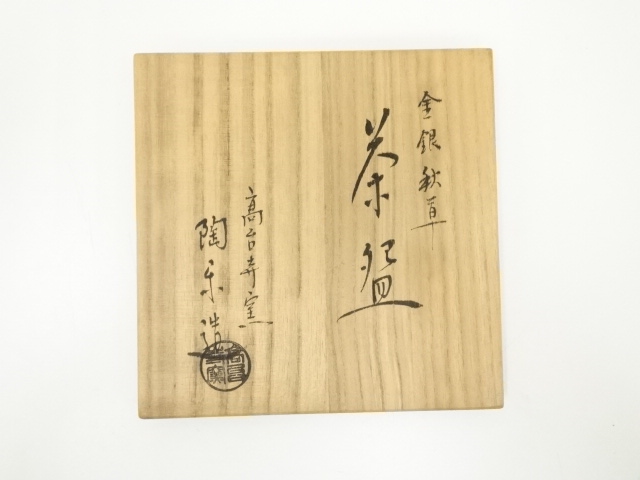 金銀秋草
茶盌
高台寺窯
陶禾造